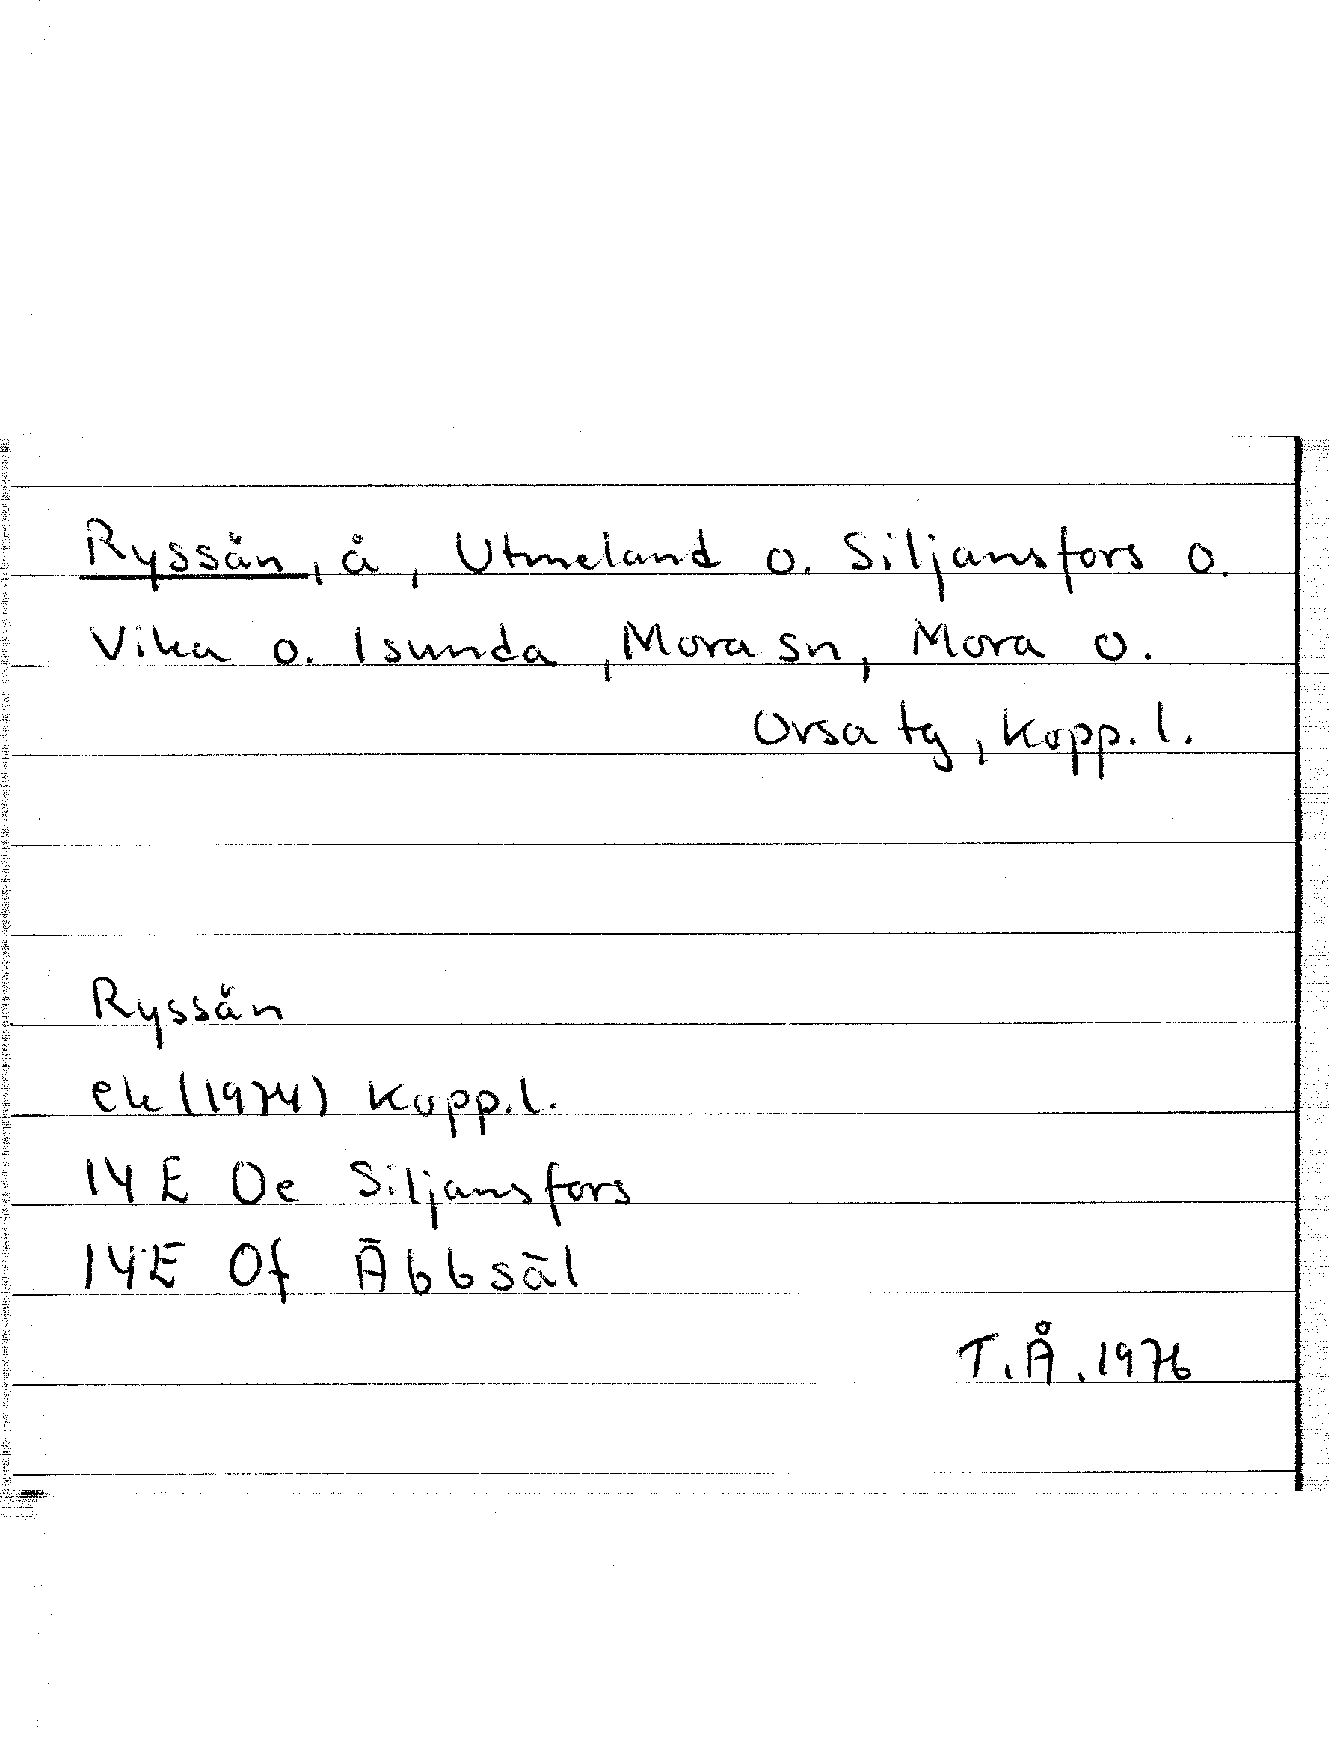 Ryssån, å, Utmeland o. Siljansfors o.
Vika o. Isunda, Mora sn, Mora o.
Orsa tg, Kopp. l.
Ryssån
ek (1974) Kopp. l.
14 E Oe Siljansfors
14E Of Äbbsäl
T.Å. 1976